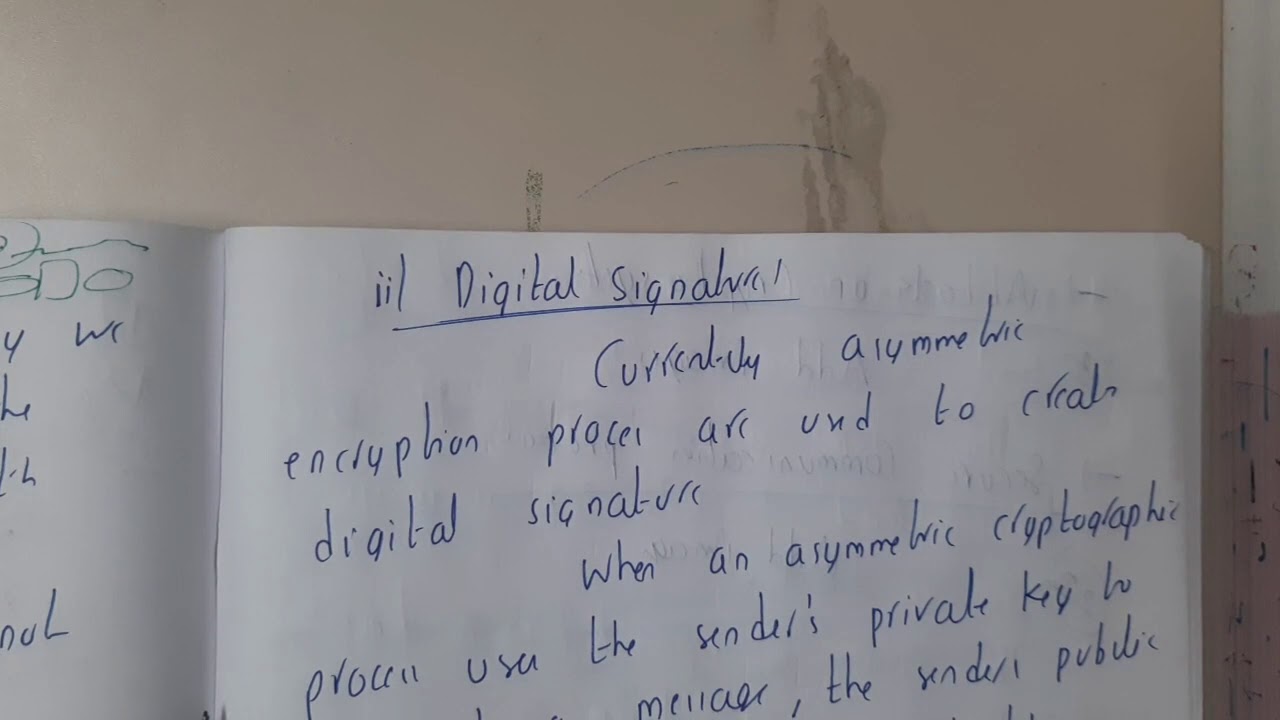 y we
the
not
ii) Digital Signatures
Currently asymmetric
encryption process are used to create
digital signature
When an asymmetric cryptographic
process uses the sender's private key to
message, the senders public